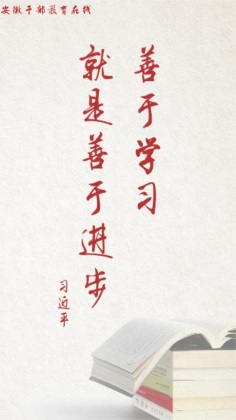 安徽干部教育在线
善于学习
就是善于进步
习近平